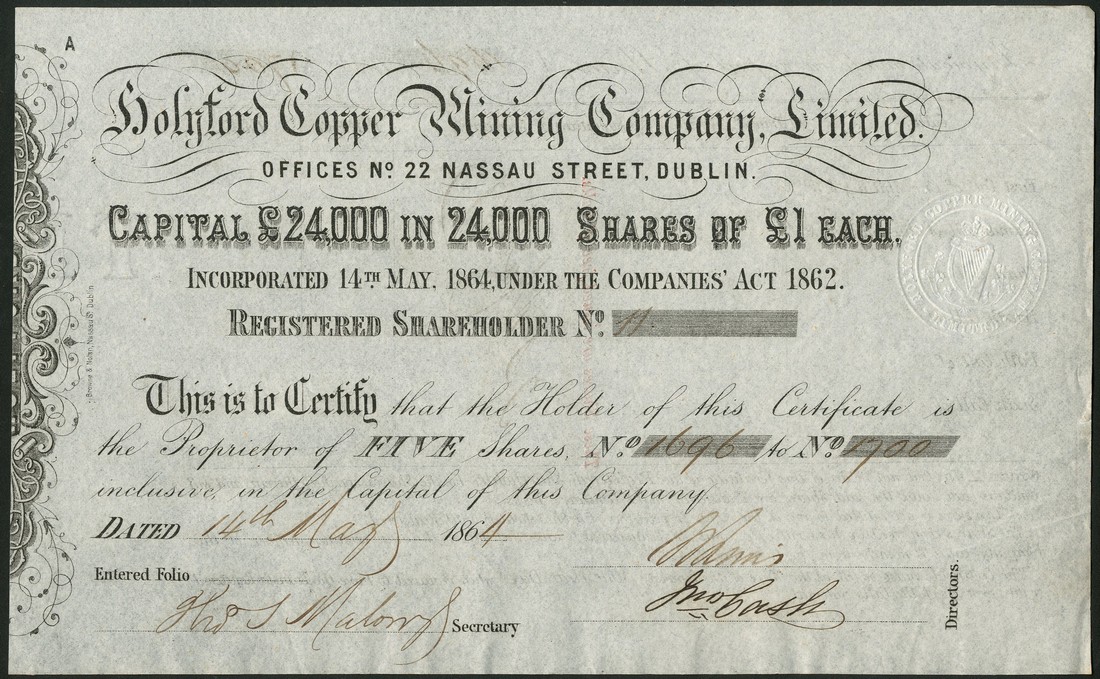 A
Holyford Copper Mining Company, Limited.
OFFICES No. 22 NASSAU STREET, DUBLIN.
CAPITAL £24,000 IN 24,000 SHARES OF £1 EACH.
INCORPORATED 14TH MAY, 1864, UNDER THE COMPANIES' ACT 1862.
REGISTERED SHAREHOLDER No. 11
This is to Certify that the Holder of this Certificate is
the Proprietor of FIVE Shares, No. 1696 to No. 1700
inclusive, in the Capital of this Company.
DATED 14th May 1864
Entered Folio
Secretary
Jno Cash
Directors.
Browne & Nolan, Nassau St. Dublin